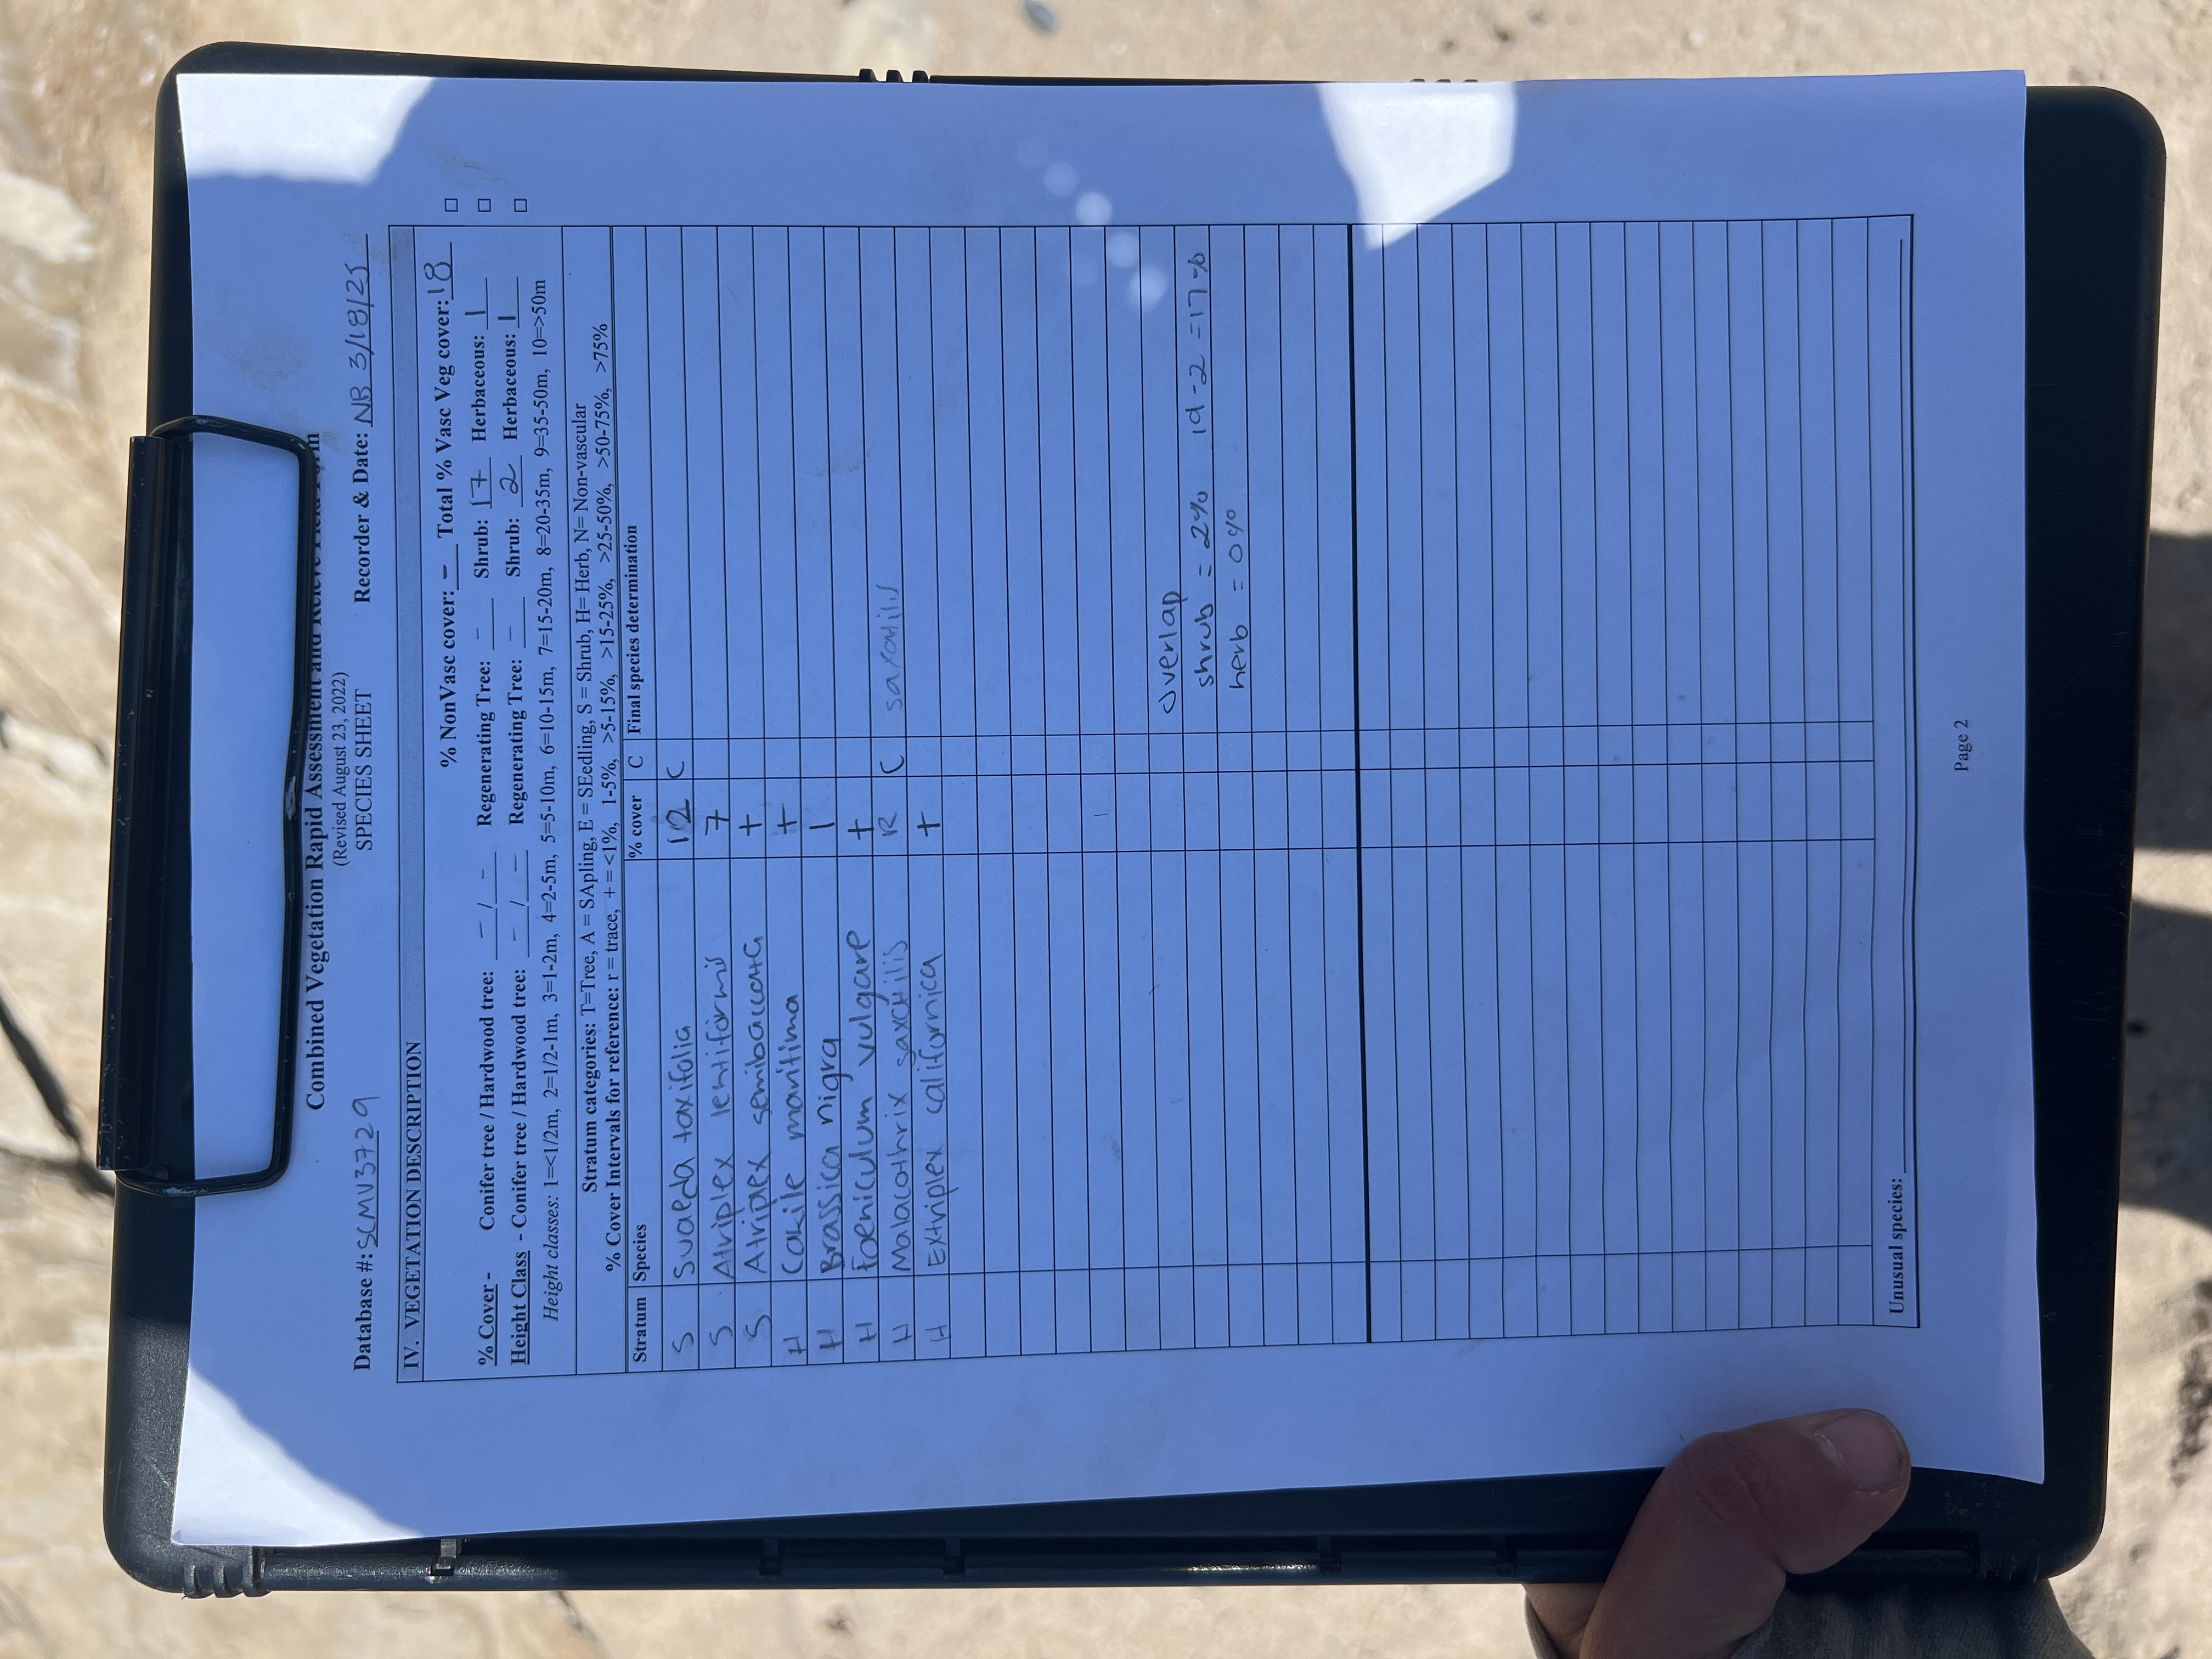 Combined Vegetation Rapid Assessment and Relevé Field Form
(Revised August 23, 2022)
SPECIES SHEET
Database #: SCMV3729 Recorder & Date: NB 3/18/25
IV. VEGETATION DESCRIPTION
% NonVasc cover: - Total % Vasc Veg cover: 18
% Cover - Conifer tree / Hardwood tree: - / - Regenerating Tree: - Shrub: 17 Herbaceous: 1
Height Class - Conifer tree / Hardwood tree: - / - Regenerating Tree: - Shrub: 2 Herbaceous: 1
Height classes: 1=<1/2m, 2=1/2-1m, 3=1-2m, 4=2-5m, 5=5-10m, 6=10-15m, 7=15-20m, 8=20-35m, 9=35-50m, 10=>50m
Stratum categories: T=Tree, A = SApling, E = SEedling, S = Shrub, H= Herb, N= Non-vascular
% Cover Intervals for reference: r = trace, + = <1%, 1-5%, >5-15%, >15-25%, >25-50%, >50-75%, >75%
Stratum Species % cover C Final species determination
S Suaeda taxifolia 12 C
S Atriplex lentiformis 7
S Atriplex semibaccata +
H Cakile maritima +
H Brassica nigra 1
H Foeniculum vulgare +
H Malacothrix saxatilis R C saxatilis
H Extriplex californica +
Overlap
shrub = 2% 19 - 2 = 17%
herb = 0%
Unusual species:
Page 2